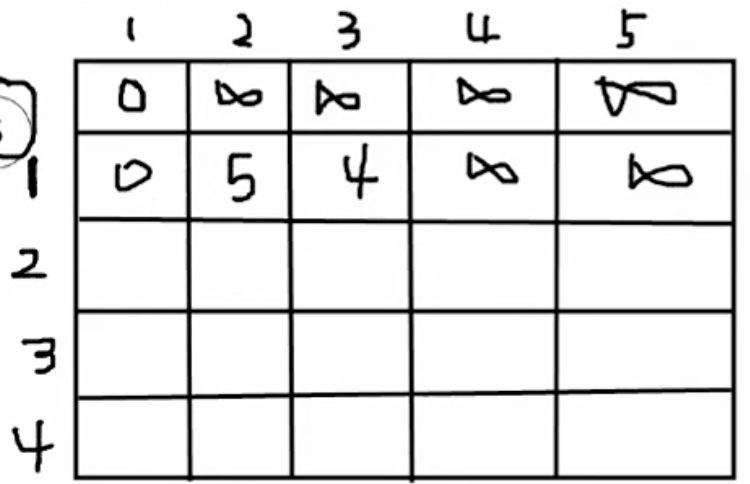 1 2 3 4 5
0 ∞ ∞ ∞ ∞
1 0 5 4 ∞ ∞
2
3
4